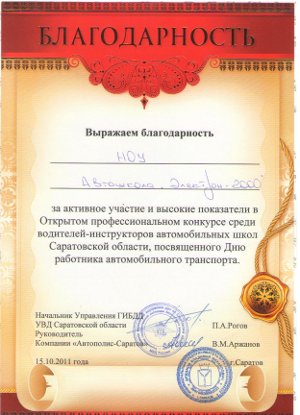 БЛАГОДАРНОСТЬ
Выражаем благодарность
НОУ
Автошкола "Электрон-2000"
за активное участие и высокие показатели в
Открытом профессиональном конкурсе среди
водителей-инструкторов автомобильных школ
Саратовской области, посвященного Дню
работника автомобильного транспорта.
Начальник Управления ГИБДД
УВД Саратовской области П.А.Рогов
Руководитель
Компании «Автополис-Саратов» В.М.Аржанов
15.10.2011 года г.Саратов